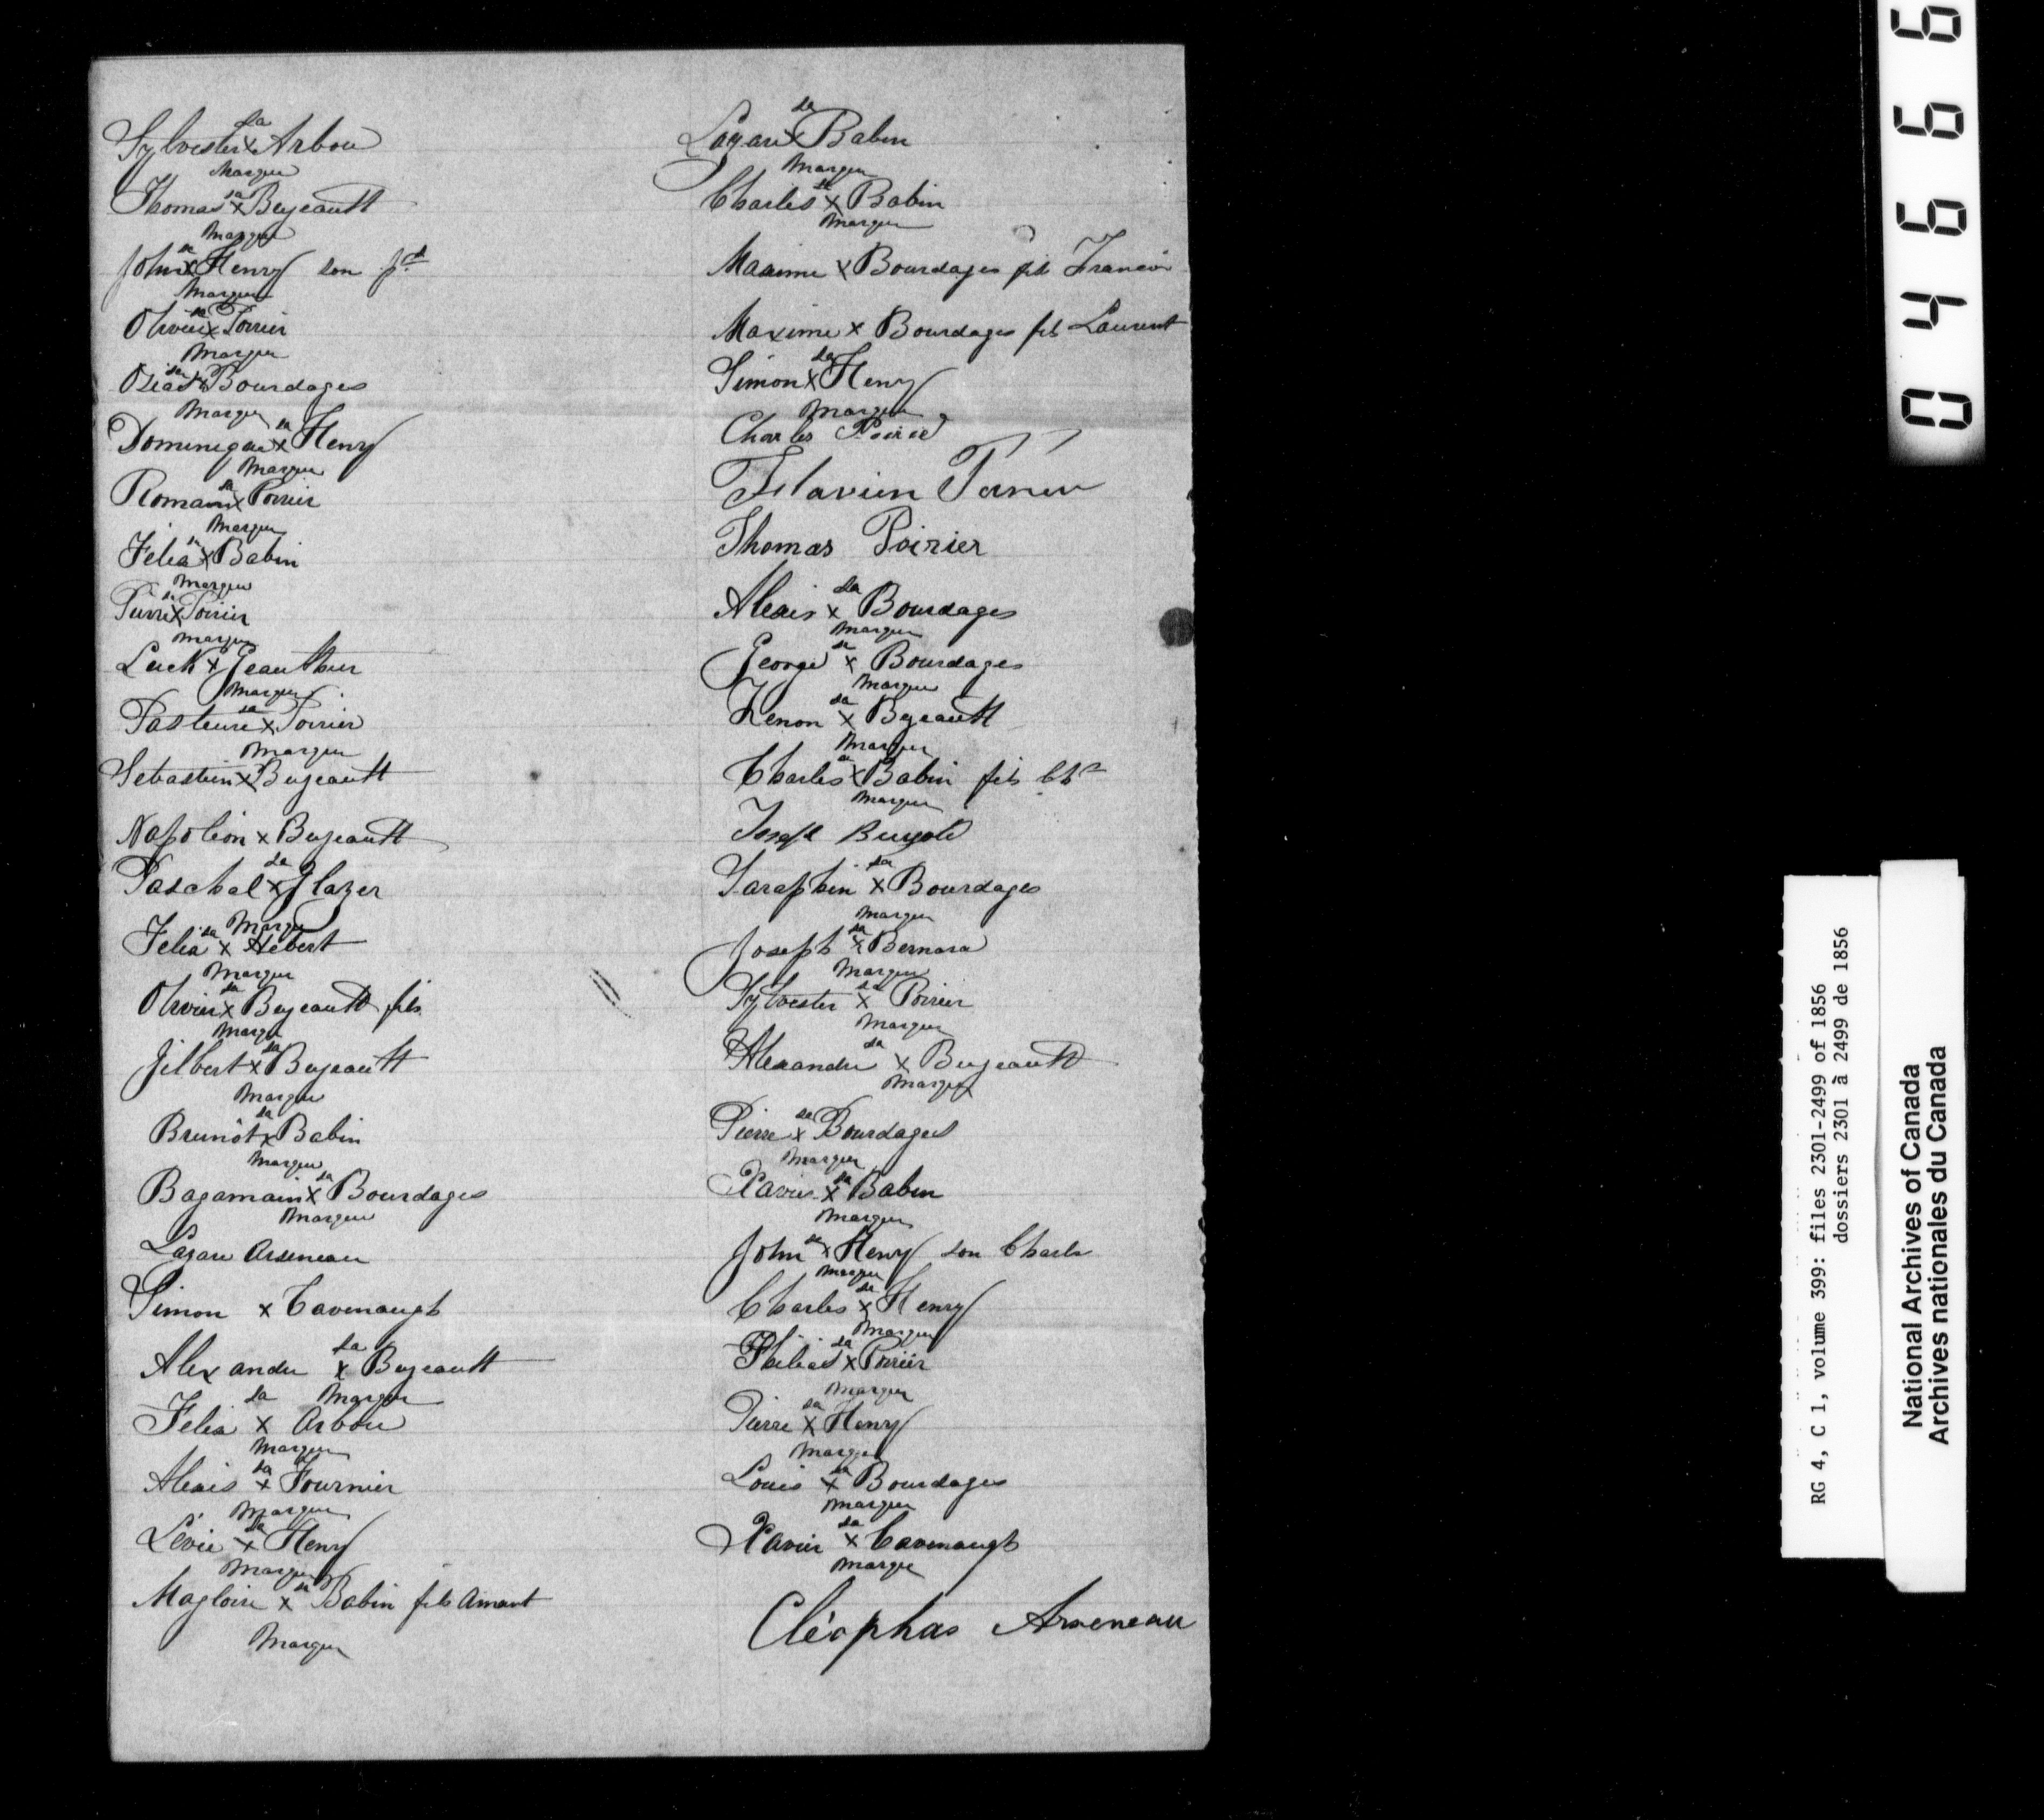 Sylvester x Arbou
sa
Marque
Thomas x Bujeault
sa
Marque
John x Henry son Jn
sa
Marque
Olivier x Poirier
sa
Marque
Osias x Bourdages
sa
Marque
Dominique x Henry
sa
Marque
Romain x Poirier
sa
Marque
Felix x Babin
sa
Marque
Pierre x Poirier
sa
Marque
Luck x Geauthier
Marque
Pasteure x Poirier
sa
Marque
Sebastien x Bujeault
Napoleon x Bujeault
Paschal x Glazer
sa
Marque
Felix x Hebert
sa
Marque
Olivier x Bujeault fils
sa
Marque
Jilbert x Bujeault
sa
Marque
Brunôt x Babin
sa
Marque
Bagamain x Bourdages
sa
Marque
Lazare Arseneau
Simon x Cavenaugh
Alexandre x Bujeault
sa
Marque
Felix x Arbou
sa
Marque
Alexis x Fournier
sa
Marque
Lévie x Henry
sa
Marque
Magloire x Babin fils Amant
sa
Marque
Lazare x Babin
sa
Marque
Charles x Babin
sa
Marque
Maxime x Bourdages fils Francois
Maxime x Bourdages fils Laurent
Simon x Henry
sa
Marque
Charles Poirier
Flavien
Thomas Poirier
Alexis x Bourdages
sa
Marque
George x Bourdages
sa
Marque
Zenon x Bujeault
sa
Marque
Charles x Babin fils Chs
sa
Marque
Joseph Bujold
Saraphin x Bourdages
sa
Marque
Joseph x Bernard
sa
Marque
Sylvester x Poirier
sa
Marque
Alexandre x Bujeault
sa
Marque
Pierre x Bourdages
sa
Marque
Xavier x Babin
sa
Marque
John x Henry son Charls
sa
Marque
Charles x Henry
sa
Marque
x Poirier
sa
Marque
Pierre x Henry
sa
Marque
Louis x Bourdages
sa
Marque
Xavier x Cavenaugh
sa
Marque
Cléophas Arseneau
04666
RG 4, C 1, volume 399: files 2301-2499 of 1856
dossiers 2301 à 2499 de 1856
National Archives of Canada
Archives nationales du Canada